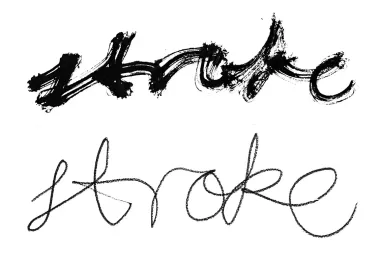 stroke
stroke